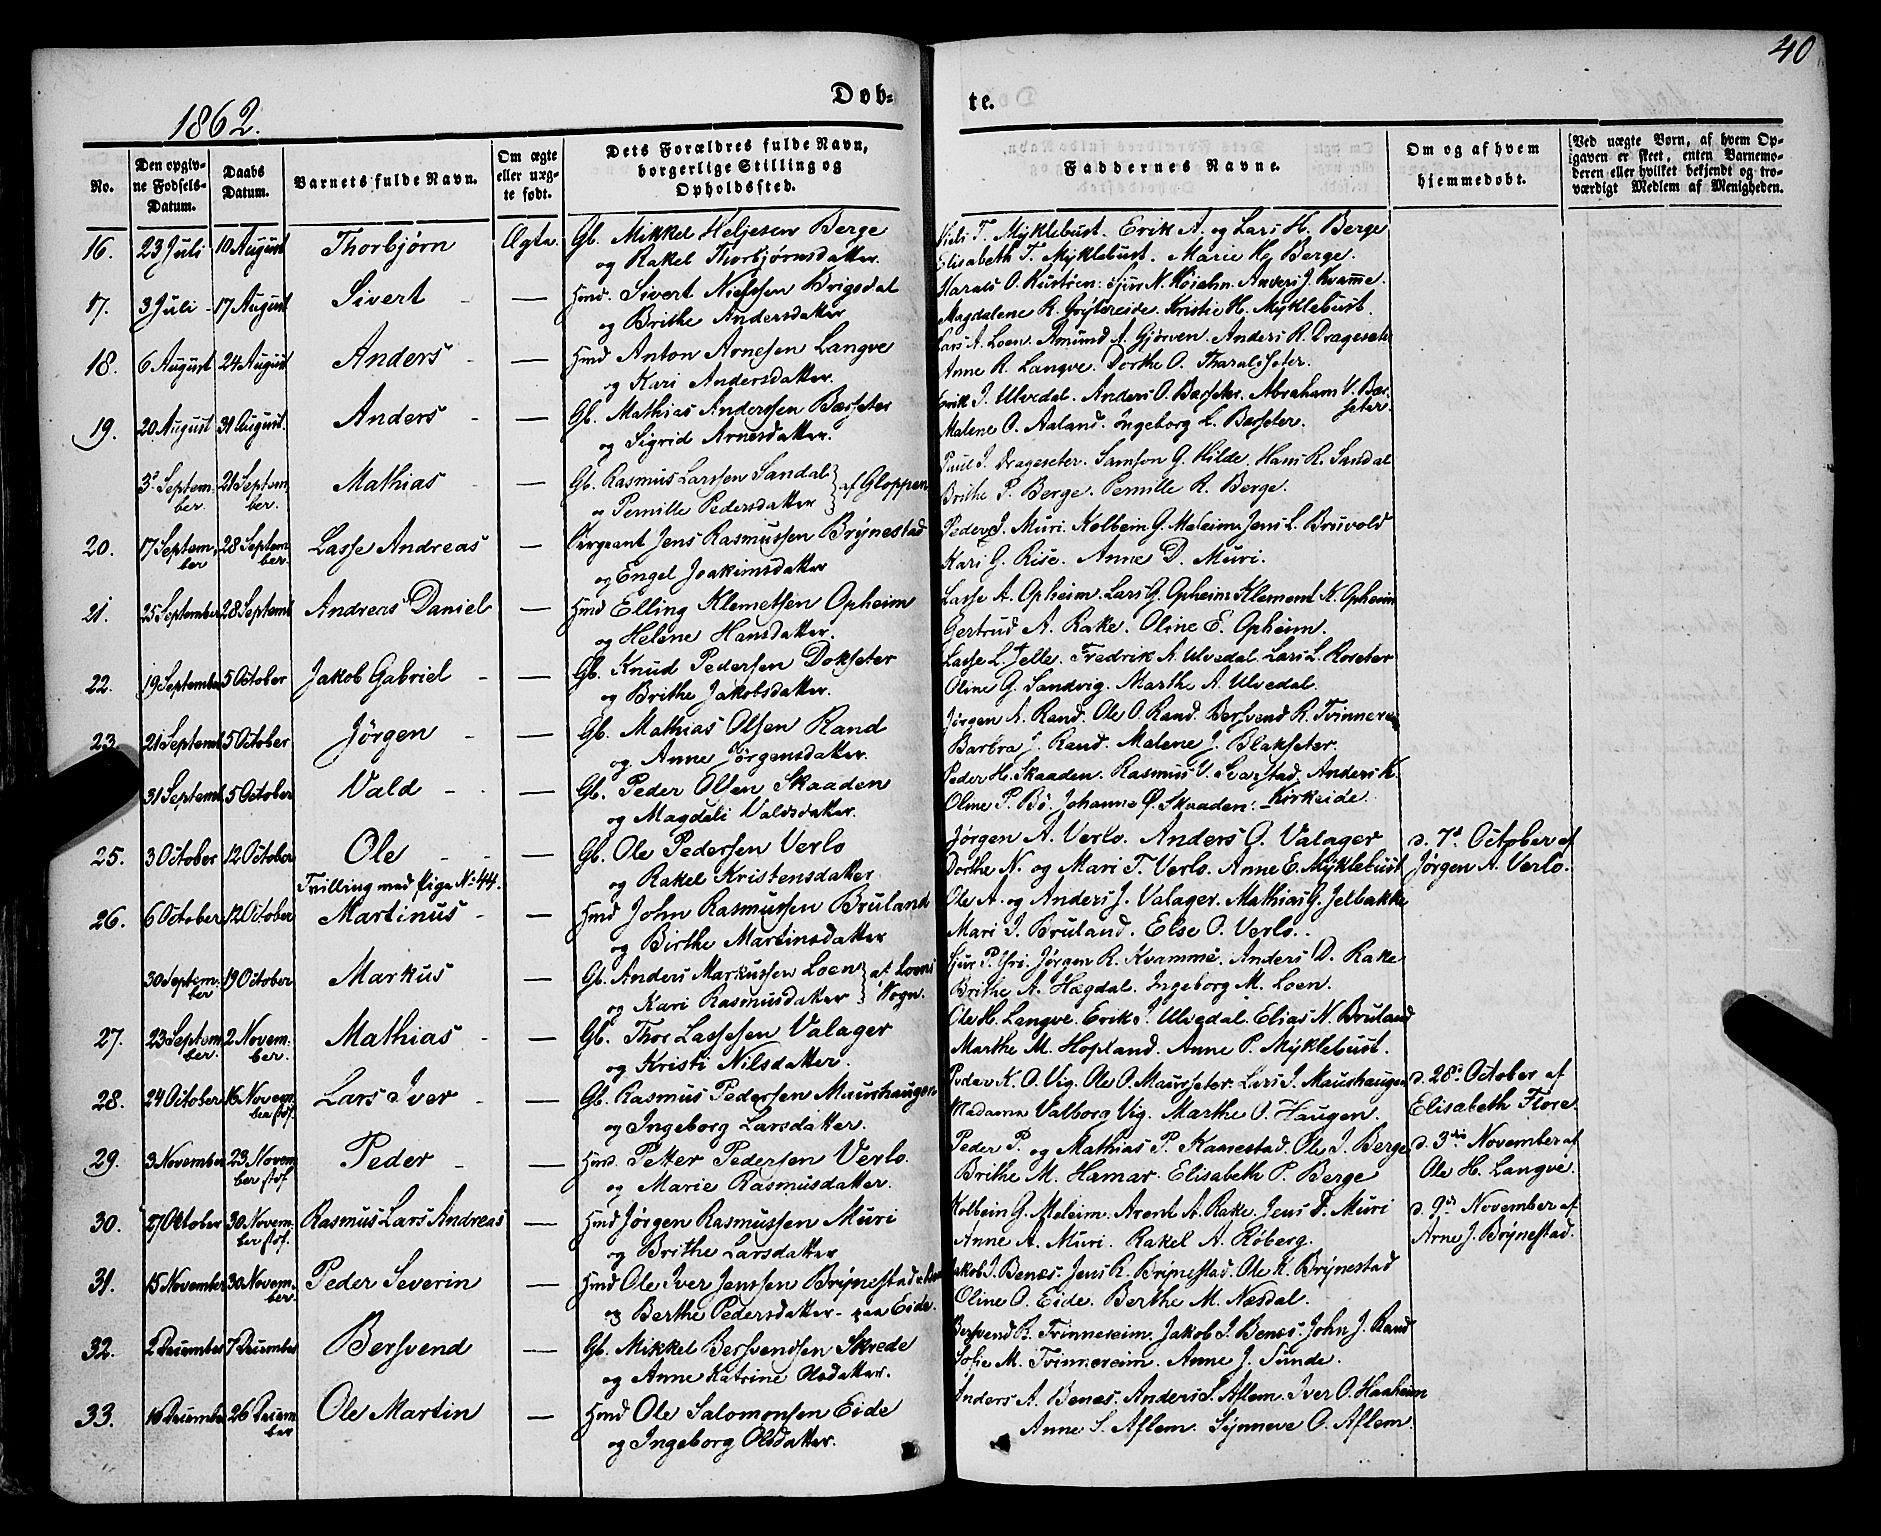 40
1862.
Døb-
te.
No.
Den opgiv-
ne Fødsels-
Datum.
Daabs
Datum.
Barnets fulde Navn.
Om ægte
eller uæg-
te født.
Dets Forældres fulde Navn,
borgerlige Stilling og
Opholdssted.
Faddernes Navne.
Om og af hvem
hjemmedøbt.
Ved uægte Børn, af hvem Op-
gaven er skeet, enten Barnemo-
deren eller hvilket bekjendt og tro-
værdigt Medlem af Menigheden.
16. 23 Juli 10 August Thorbjørn Ægte Gb. Mikkel Heljesen Berge Niels T. Myklebust. Erik A. og Lars H. Berge
og Rakel Thorbjørnsdatter. Elisabeth T. Myklebust. Marie H. Berge.
17. 3 Juli - 17 August Sivert - — Hmd. Sivert Nielssen Brigsdal Harald O. Rustøen. Sjur N. Anders J. Kvamme.
og Brithe Andersdatter Magdalene R. Grytereide. Kristie H. Myklebust.
18. 6 August 24 August Anders - — Hmd Anton Arnesen Langve Lars A. Loen. Amund A. Gjørven. Anders R. Drageseter
og Kari Andersdatter. Anne R. Langve. Dorthe O. Tharaldseter.
19. 20 August 31 August. Anders - — Gb. Mathias Anderssen Bærseter Erik J. Ulvedal. Anders O. Bærseter. Abraham V. Bær-
seter.
og Sigrid Arnesdatter. Malene O. Aaland. Ingeborg L. Berseter.
3d Septem- 21 Septem- Mathias - — Gb. Rasmus Larssen Sandal } af Gloppen Paul J. Drageseter. Samson G. Hilde. Hans R. Sandal
ber. ber. og Pernille Pedersdatter Brithe P. Berge. Pernille R. Berge.
20. 17 Septem- 28 Septem- Lasse Andreas — Sergeant Jens Rasmussen Brynestad Peder J. Muri. Kolbein G. Meleim. Jens L. Bruvold
ber ber. og Engel Joakimsdatter Kari G. Rise. Anne D. Muri.
21. 25 September 28 Septemb Andreas Daniel — Hmd Elling Klemetsen Opheim Lasse A. Opheim. Lars G. Opheim. Klement K. Opheim
og Helene Hansdatter. Gertrud A. Rake. Oline E. Opheim.
22. 19 September 5 October Jakob Gabriel - — Gb. Knud Pedersen Dokseter Lasse L. Jelle. Fredrik A. Ulvedal. Lars L. Roseter
og Brithe Jakobsdatter. Oline G. Sandvig. Marthe A. Ulvedal.
23. 21 Septemb 5 October Jørgen - — Gb. Mathias Olsen Rand Jørgen A. Rand. Ole O. Rand. Bersvend R. Tvinnerei
og Anne Jørgensdatter. Barbra J. Rand. Malene J. Blakseter.
31 Septemb 5 October Vald - - — Gb. Peder Olsen Skaaden Peder H. Skaaden. Rasmus V. Svarstad. Anders K.
og Magdeli Valdsdatter. Oline P. Bø. Johanne Ø. Skaaden. Kirkeide.
25. 3 October 12 October Ole - - — Gb. Ole Pedersen Verlo Jørgen A. Verlo. Anders O. Valager d. 7d October af
Tvilling med Pige No. 44. og Rakel Kristensdatter Dorthe N. og Mari T. Verlo. Anne E. Myklebust Jørgen A. Verlo.
26. 6 October 12 October Martinus - — Hmd John Rasmussen Bruland Ole A. og Anders J. Valager. Mathias G. Jelbakke
og Birthe Martinsdatter Mari J. Bruland. Else O. Verlo.
30 Septem- 19 October Markus — Gb. Anders Markussen Loen } af Loens Sjur P. Yri. Jørgen R. Kvamme. Anders D. Rake
ber og Kari Rasmusdatter Sogn. Brithe A. Hægdal. Ingeborg M. Loen.
27. 23 Septem- 2 Novem- Mathias - — Gb. Thor Lassesen Valager Ole H. Langve. Erik J. Ulvedal. Elias N. Bruland
ber. ber. og Kristi Nilsdatter. Marthe M. Hopland. Anne P. Myklebust.
28. 24 October 16 Novem- Lars Iver - — Gb. Rasmus Pedersen Maurshaugen Peder K. O. Vig. Ole O. Maurseter. Lars J. Maurshaugen d. 28d October af
ber stof. og Ingeborg Larsdatter. Madame Valborg Vig. Marthe O. Haugen. Elisabeth Flore.
29. 3 November 23 Novem- Peder - — Hmd. Petter Pedersen Verlo. Peder P. og Mathias P. Kanestad. Ole J. Berge d. 3die November af
ber stof og Marie Rasmusdatter. Brithe M. Hamar. Elisabeth P. Berge Ole H. Langve.
30. 27 Oktober 30 Novem- Rasmus Lars Andreas — Hmd Jørgen Rasmussen Muri Kolbein G. Meleim. Arent A. Rake. Jens D. Muri d. 9de November af
ber stof. og Brithe Larsdatter Anne A. Muri. Rakel A. Røberg. Arne J. Brynestad.
31. 15 November 30 Novem- Peder Severin — Hmd Ole Iver Janssen Brynestad Jakob J. Benes. Jens R. Brynestad. Ole K. Brynestad
ber. og Berthe Pedersdatter - paa Eide. Oline O. Eide. Berthe M. Næsdal.
32. 2 December 7 December Bersvend — Gb. Mikkel Bersvendsen Skrede Bersvend R. Tvinnereim. Jakob J. Benes. John J. Rand
og Anne Katrine Olsdatter. Sofie M. Tvinnereim. Anne J. Sunde.
33. 10 December 26 Decem- Ole Martin — Hmd Ole Salomonsen Eide Anders A. Benes. Anders S. Aflem. Iver O. Haaheim
ber og Ingeborg Olsdatter. Anne S. Aflem. Synneve O. Aflem.